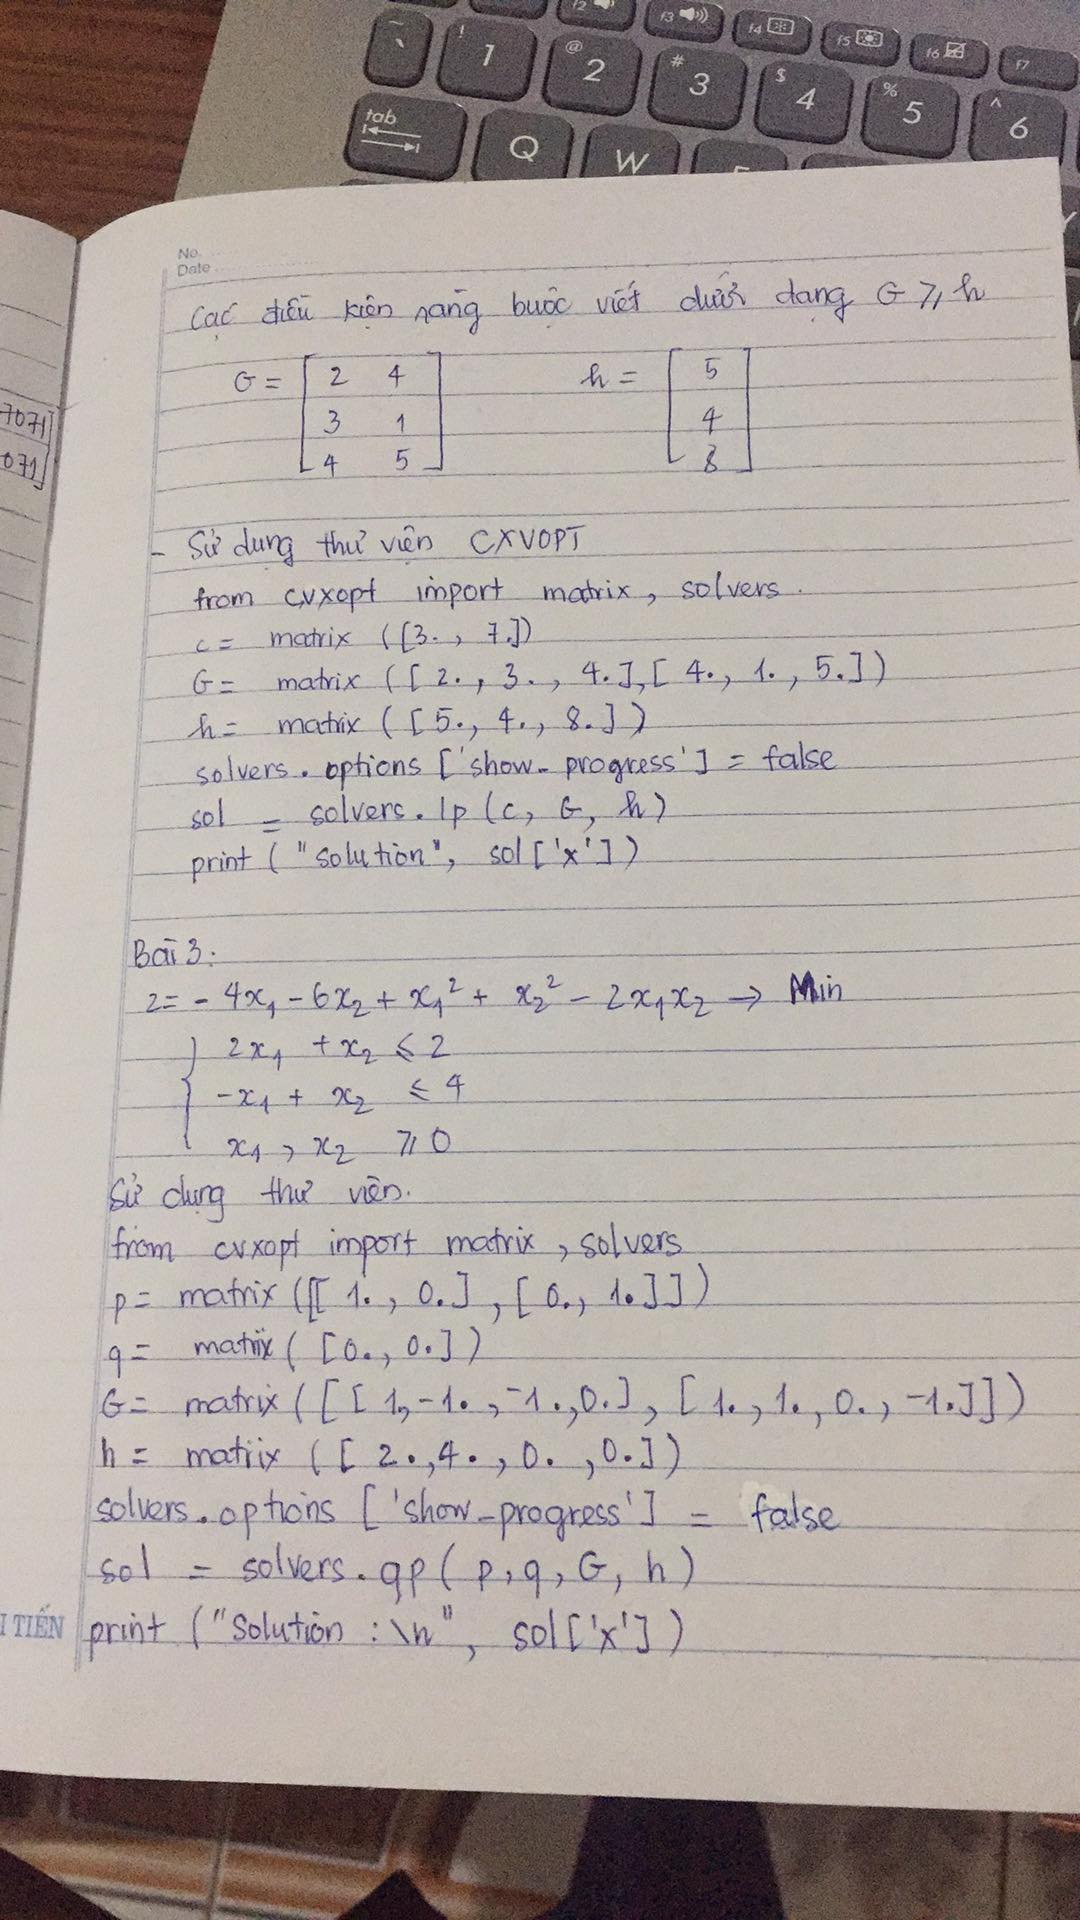 ~ ` ! 1 @ 2 # 3 $ 4 % 5 ^ 6
f2 f3 f4 f5 f6 f7
tab Q W
No.
Date
7071]
071]
Các điều kiện ràng buộc viết dưới dạng G ⩾ h
G = [ 2 4 h = [ 5
3 1 4
4 5 ] 8 ]
- Sử dụng thư viện CXVOPT
from cvxopt import matrix, solvers.
c = matrix ([3. , 7.])
G = matrix ([ 2. , 3. , 4. ],[ 4. , 1. , 5. ])
h = matrix ([ 5. , 4. , 8. ])
solvers. options ['show_progress'] = false
sol = solvers. lp (c, G, h)
print ("solution", sol ['x'])
Bài 3:
z = - 4x₁ - 6x₂ + x₁² + x₂² - 2x₁x₂ → Min
{ 2x₁ + x₂ ⩽ 2
-x₁ + x₂ ⩽ 4
x₁ , x₂ ⩾ 0
Sử dụng thư viện.
from cvxopt import matrix, solvers
p = matrix ([[ 1. , 0.] , [ 0. , 1. ]])
q = matrix ( [0. , 0.])
G = matrix ([[ 1, -1. , -1. , 0. ] , [ 1. , 1. , 0. , -1. ]])
h = matrix ([ 2. , 4. , 0. , 0. ])
solvers. options ['show_progress'] = false
sol = solvers. qp ( p, q, G, h )
I TIẾN
print ("Solution : \n", sol ['x'])